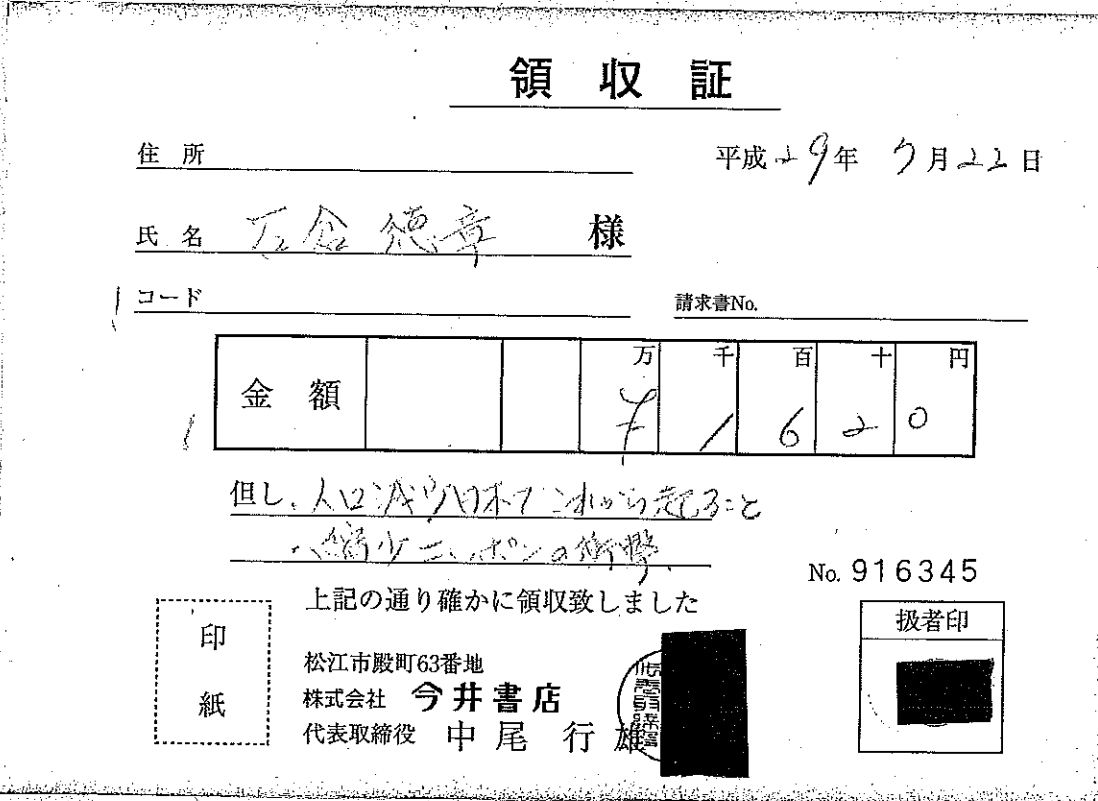 領収証
住所
平成29年 9月22日
氏名 石倉 徳章 様
コード
請求書No.
金額 万 千 百 十 円
¥ 1 6 2 0
但し、人口減少日本でこれから起ること
・縮小ニッポンの衝撃
No. 916345
上記の通り確かに領収致しました
印紙
扱者印
松江市殿町63番地
株式会社 今井書店
代表取締役 中尾 行雄